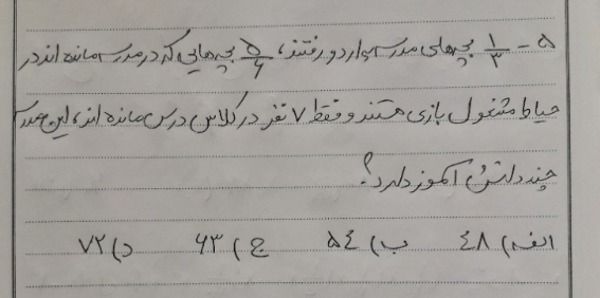 ۵- ۱/۳ بچه‌های مدرسه به اردو رفتند، ۵/۶ بچه‌هایی که در مدرسه مانده اند در
حیاط مشغول بازی هستند و فقط ۷ نفر در کلاس درس مانده اند، این مدرسه
چند دانش آموز دارد؟
الف) ۴۸ ب) ۵۴ ج) ۶۳ د) ۷۲